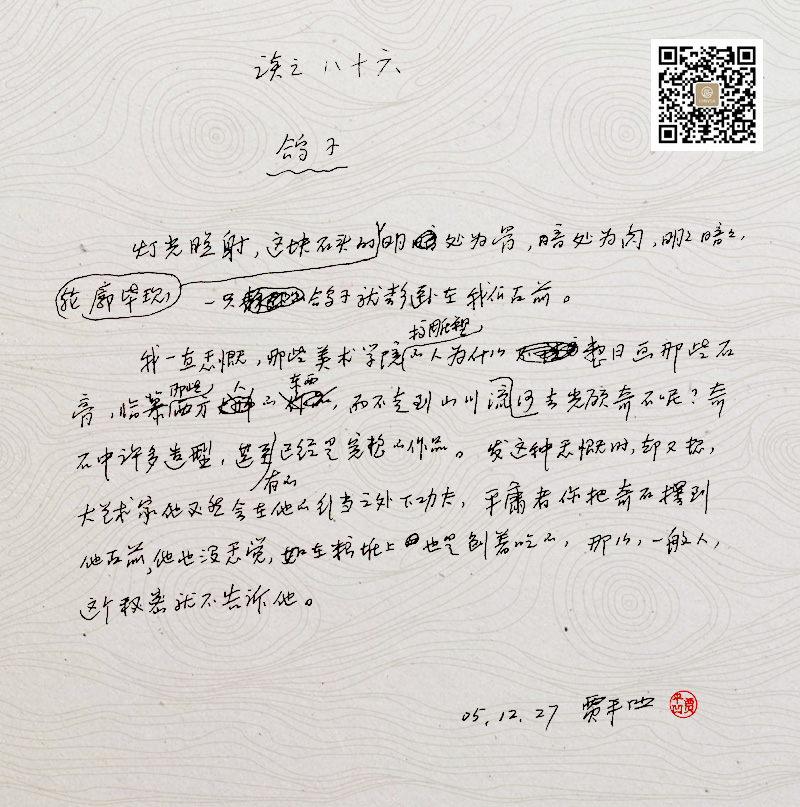 读之八十六
鸽子
灯光照射，这块石头的明处为骨，暗处为肉，明明暗暗，
轮廓毕现，一只鸽子就彰显在我们面前。
搞雕塑
我一直感慨，那些美术学院的人为什么整日画那些石
那些 人 东西
膏，临摹西方的，而不走到山川流河去光顾奇石呢？奇
石中许多造型，甚至已经是完整的作品。发这种感慨时，却又想，
有的
大艺术家他必然会在他的行当之外下功夫，平庸者你把奇石摆到
他面前，他也没感觉，如在粮堆上也是刨着吃的，那么，一般人，
这个秘密就不告诉他。
05.12.27 贾平凹
平凹贾